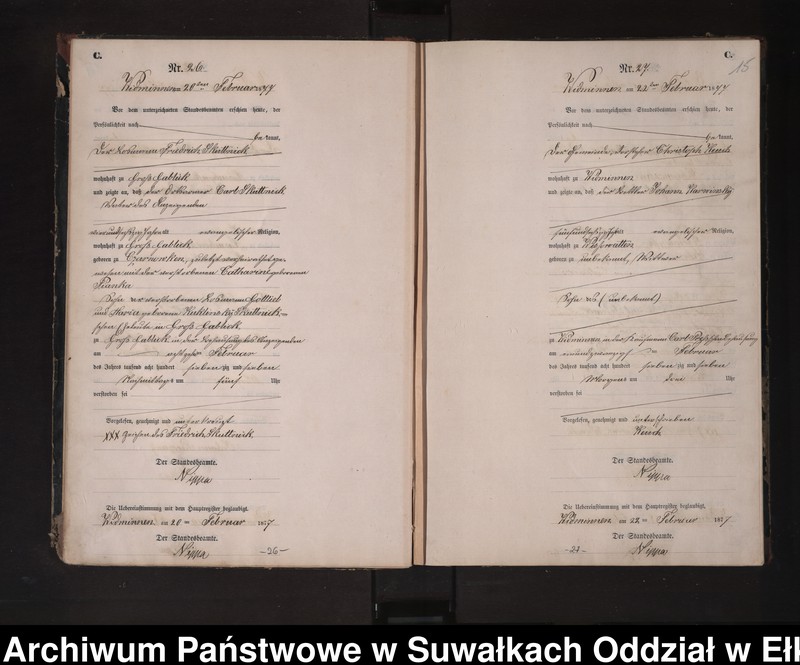 C.
Nr. 26
Widminnen am 20ten Februar 1877
Vor dem unterzeichneten Standesbeamten erschien heute, der
Persönlichkeit nach
kannt,
Der Losmann Friedrich Skuttnick
wohnhaft zu Groß Gablick
und zeigte an, daß der Carl Skuttneck
Vater des Anzeigenden
alt evangelischer Religion,
wohnhaft zu Groß Gablick
geboren zu Czarnowken, zuletzt verheirathet ge-
wesen mit der verstorbenen Catharine geborenen
Pianka
Sohn der verstorbenen Losmann Gottlieb
und Maria geborene
Eheleute in Groß Gablick
zu Groß Gablick in der Behausung des Anzeigenden
am Februar
des Jahres tausend acht hundert sieben zig und sieben
Nachmittags um fünf Uhr
verstorben sei
Vorgelesen, genehmigt und
XXX Zeichen des Friedrich Skuttnick
Der Standesbeamte.
Nippa
Die Uebereinstimmung mit dem Hauptregister beglaubigt.
Widminnen am 20ten Februar 1877
Der Standesbeamte.
Nippa
-26-
C.
15
Nr. 27
Widminnen am 22ten Februar 1877
Vor dem unterzeichneten Standesbeamten erschien heute, der
Persönlichkeit nach
kannt,
Der Gemeinde Vorsteher Christoph
wohnhaft zu Widminnen
und zeigte an, daß der Bettler Johann
evangelischer Religion,
wohnhaft zu
geboren zu unbekannt, Wittwer
Sohn des (unbekannt)
zu Widminnen in der Carl
am einundzwanzig ten Februar
des Jahres tausend acht hundert sieben zig und sieben
Morgens um drei Uhr
verstorben sei
Vorgelesen, genehmigt und unterschrieben
Der Standesbeamte.
Nippa
Die Uebereinstimmung mit dem Hauptregister beglaubigt.
Widminnen am 22ten Februar 1877
Der Standesbeamte.
Nippa
-27-
Archiwum Państwowe w Suwałkach Oddział w Eł